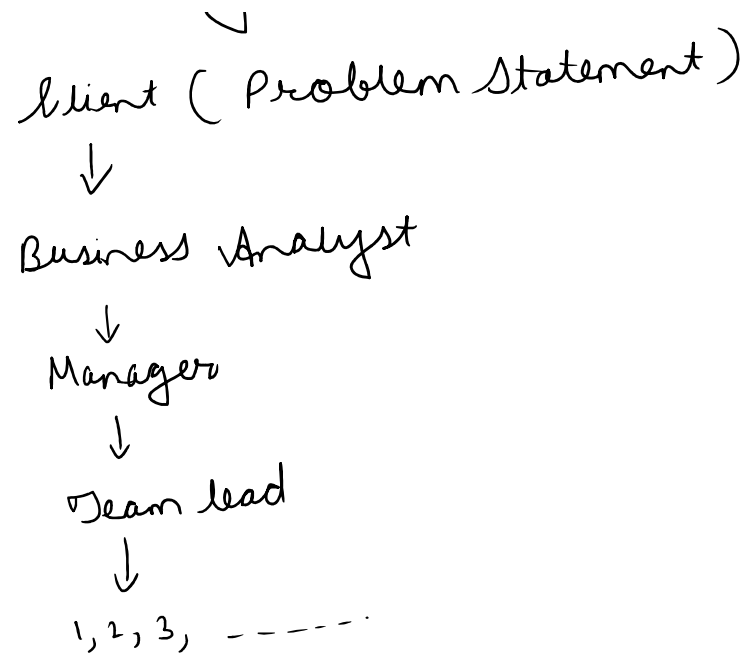 Client ( Problem Statement )
↓
Business Analyst
↓
Manager
↓
Team lead
↓
1, 2, 3, -------